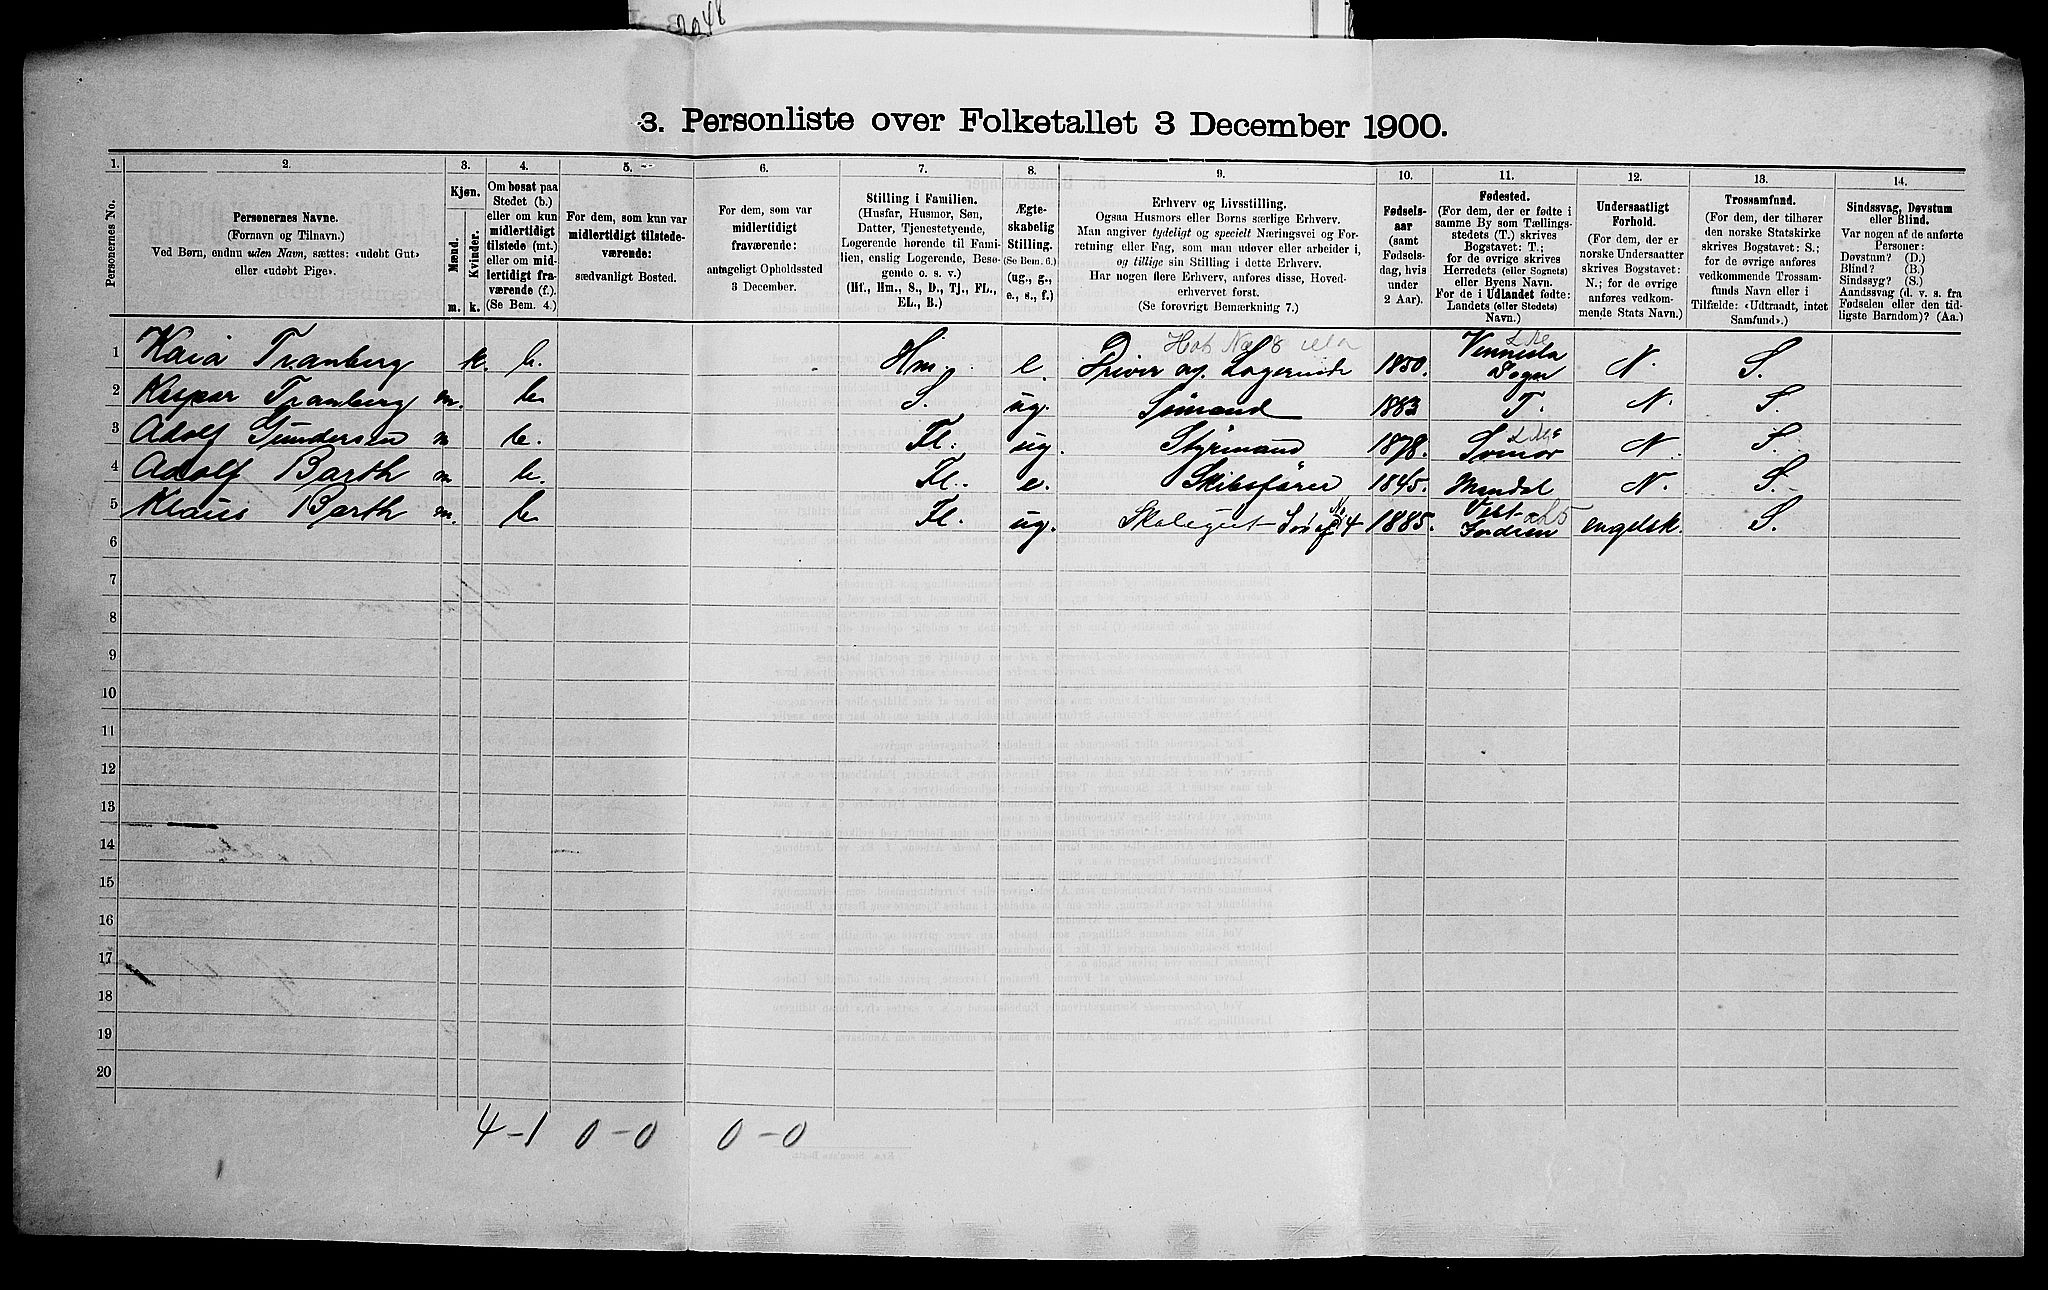 2048
3. Personliste over Folketallet 3 December 1900.
1. 2. 3. 4. 5. 6. 7. 8. 9. 10. 11. 12. 13. 14.
Personernes No.
Personernes Navne.
(Fornavn og Tilnavn.)
Ved Børn, endnu uden Navn, sættes: «udøbt Gut»
eller «udøbt Pige».
Kjøn.
Mænd. Kvinder.
m. k.
Om bosat paa
Stedet (b.)
eller om kun
midlertidigt
tilstede (mt.)
eller om mid-
lertidigt fra-
værende (f.).
(Se Bem. 4.)
For dem, som kun var
midlertidigt tilstede-
værende:
sædvanligt Bosted.
For dem, som var
midlertidigt
fraværende:
antageligt Opholdssted
3 December.
Stilling i Familien.
(Husfar, Husmor, Søn,
Datter, Tjenestetyende,
Logerende hørende til Fami-
lien, enslig Logerende, Besø-
gende o. s. v.)
(Hf., Hm., S., D., Tj., FL.,
EL., B.)
Ægte-
skabelig
Stilling.
(Se Bem. 6.)
(ug., g.,
e., s., f.)
Erhverv og Livsstilling.
Ogsaa Husmors eller Børns særlige Erhverv.
Man angiver tydeligt og specielt Næringsvei og For-
retning eller Fag, som man udøver eller arbeider i,
og tillige sin Stilling i dette Erhverv.
Har nogen flere Erhverv, anføres disse, Hoved-
erhvervet først.
(Se forøvrigt Bemærkning 7.)
Fødsels-
aar
(samt
Fødsels-
dag, hvis
under
2 Aar).
Fødested.
(For dem, der er fødte i
samme By som Tællings-
stedets (T.) skrives
Bogstavet: T.;
for de øvrige skrives
Herredets (eller Sognets)
eller Byens Navn.
For de i Udlandet fødte:
Landets (eller Stedets)
Navn.)
Undersaatligt
Forhold.
(For dem, der er
norske Undersaatter
skrives Bogstavet:
N.; for de øvrige
anføres vedkom-
mende Stats Navn.)
Trossamfund.
(For dem, der tilhører
den norske Statskirke
skrives Bogstavet: S.;
for de øvrige anføres
vedkommende Trossam-
funds Navn eller i
Tilfælde: «Udtraadt, intet
Samfund».)
Sindssvag, Døvstum
eller Blind.
Var nogen af de anførte
Personer:
Døvstum? (D.)
Blind? (B.)
Sindssyg? (S.)
Aandssvag (d. v. s. fra
Fødselen eller den tid-
ligste Barndom)? (Aa.)
1 Kaia Tranberg k. b. Hm. e. Driver og Logerende 1850. Vennesla Sogn N. S.
2 Kaspar Tranberg m. b. S. ug. Sømand 1883 T. N. S.
3 Adolf Gundersen m b. Fl. ug. Styrmand 1878. N. S.
4 Adolf Barth m b. Fl. e. Skibsfører 1845. Mandal N. S.
5 Klaus Barth m. b. Fl. ug. Skolegut Søn af No 4 1885. Vest-Indien engelsk. S.
6
7
8
9
10
11
12
13
14
15
16
17
18
19
20
4-1 0-0 0-0